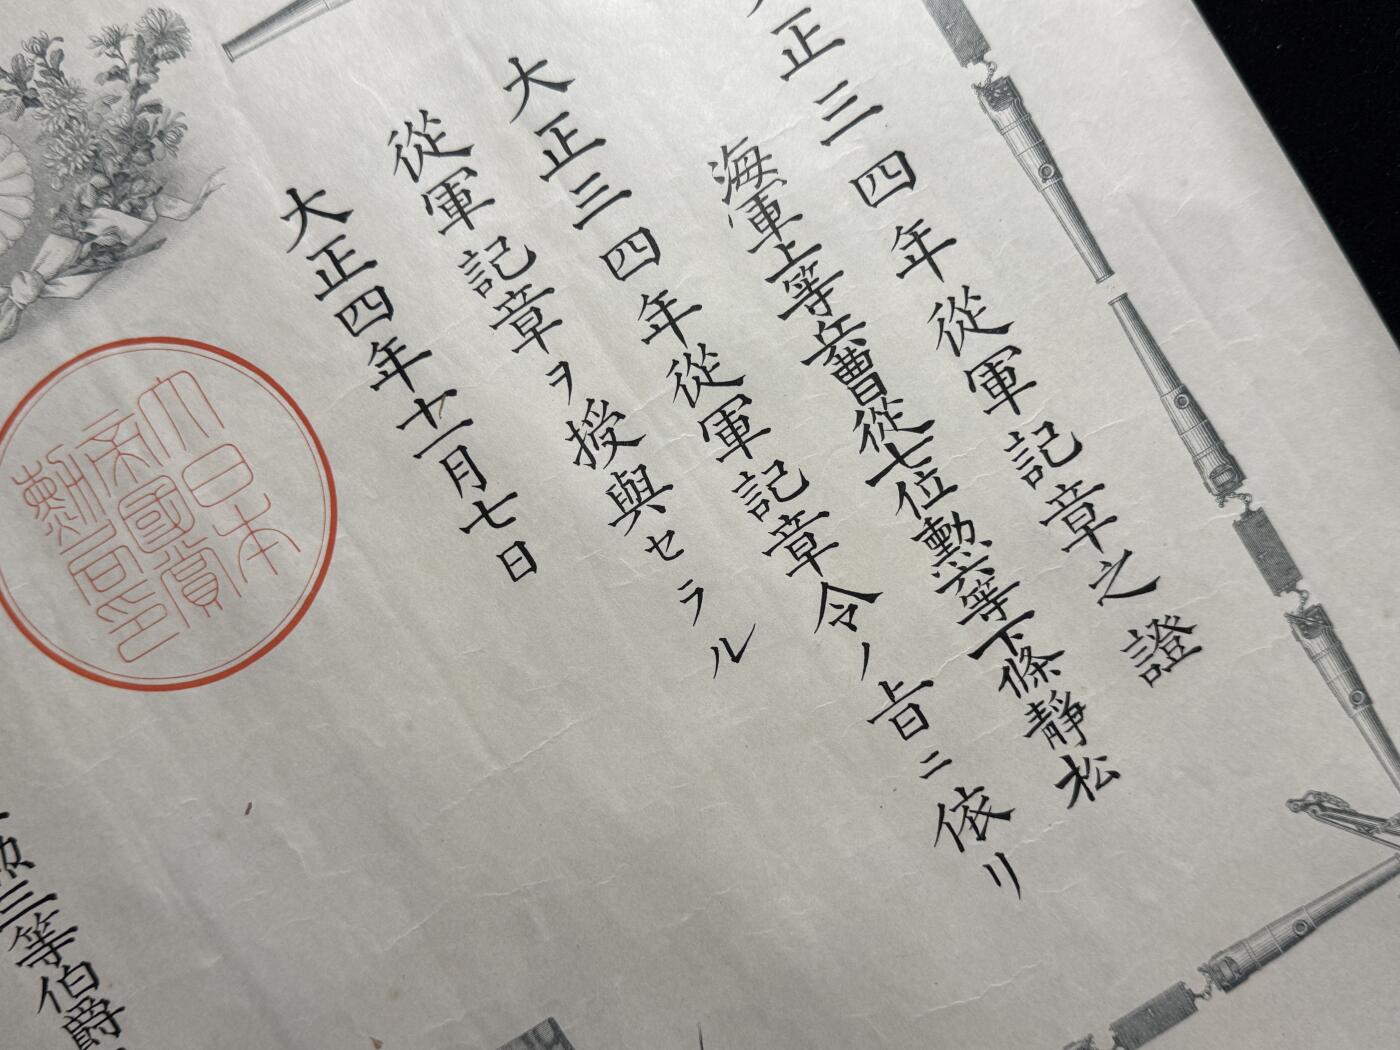 正三四年從軍記章之證
海軍上等兵曹從七位勳六等下條靜松
大正三四年從軍記章令ノ旨ニ依リ
從軍記章ヲ授與セラル
大正四年十一月七日
大日本
帝國賞
勳局印
勳三等伯爵